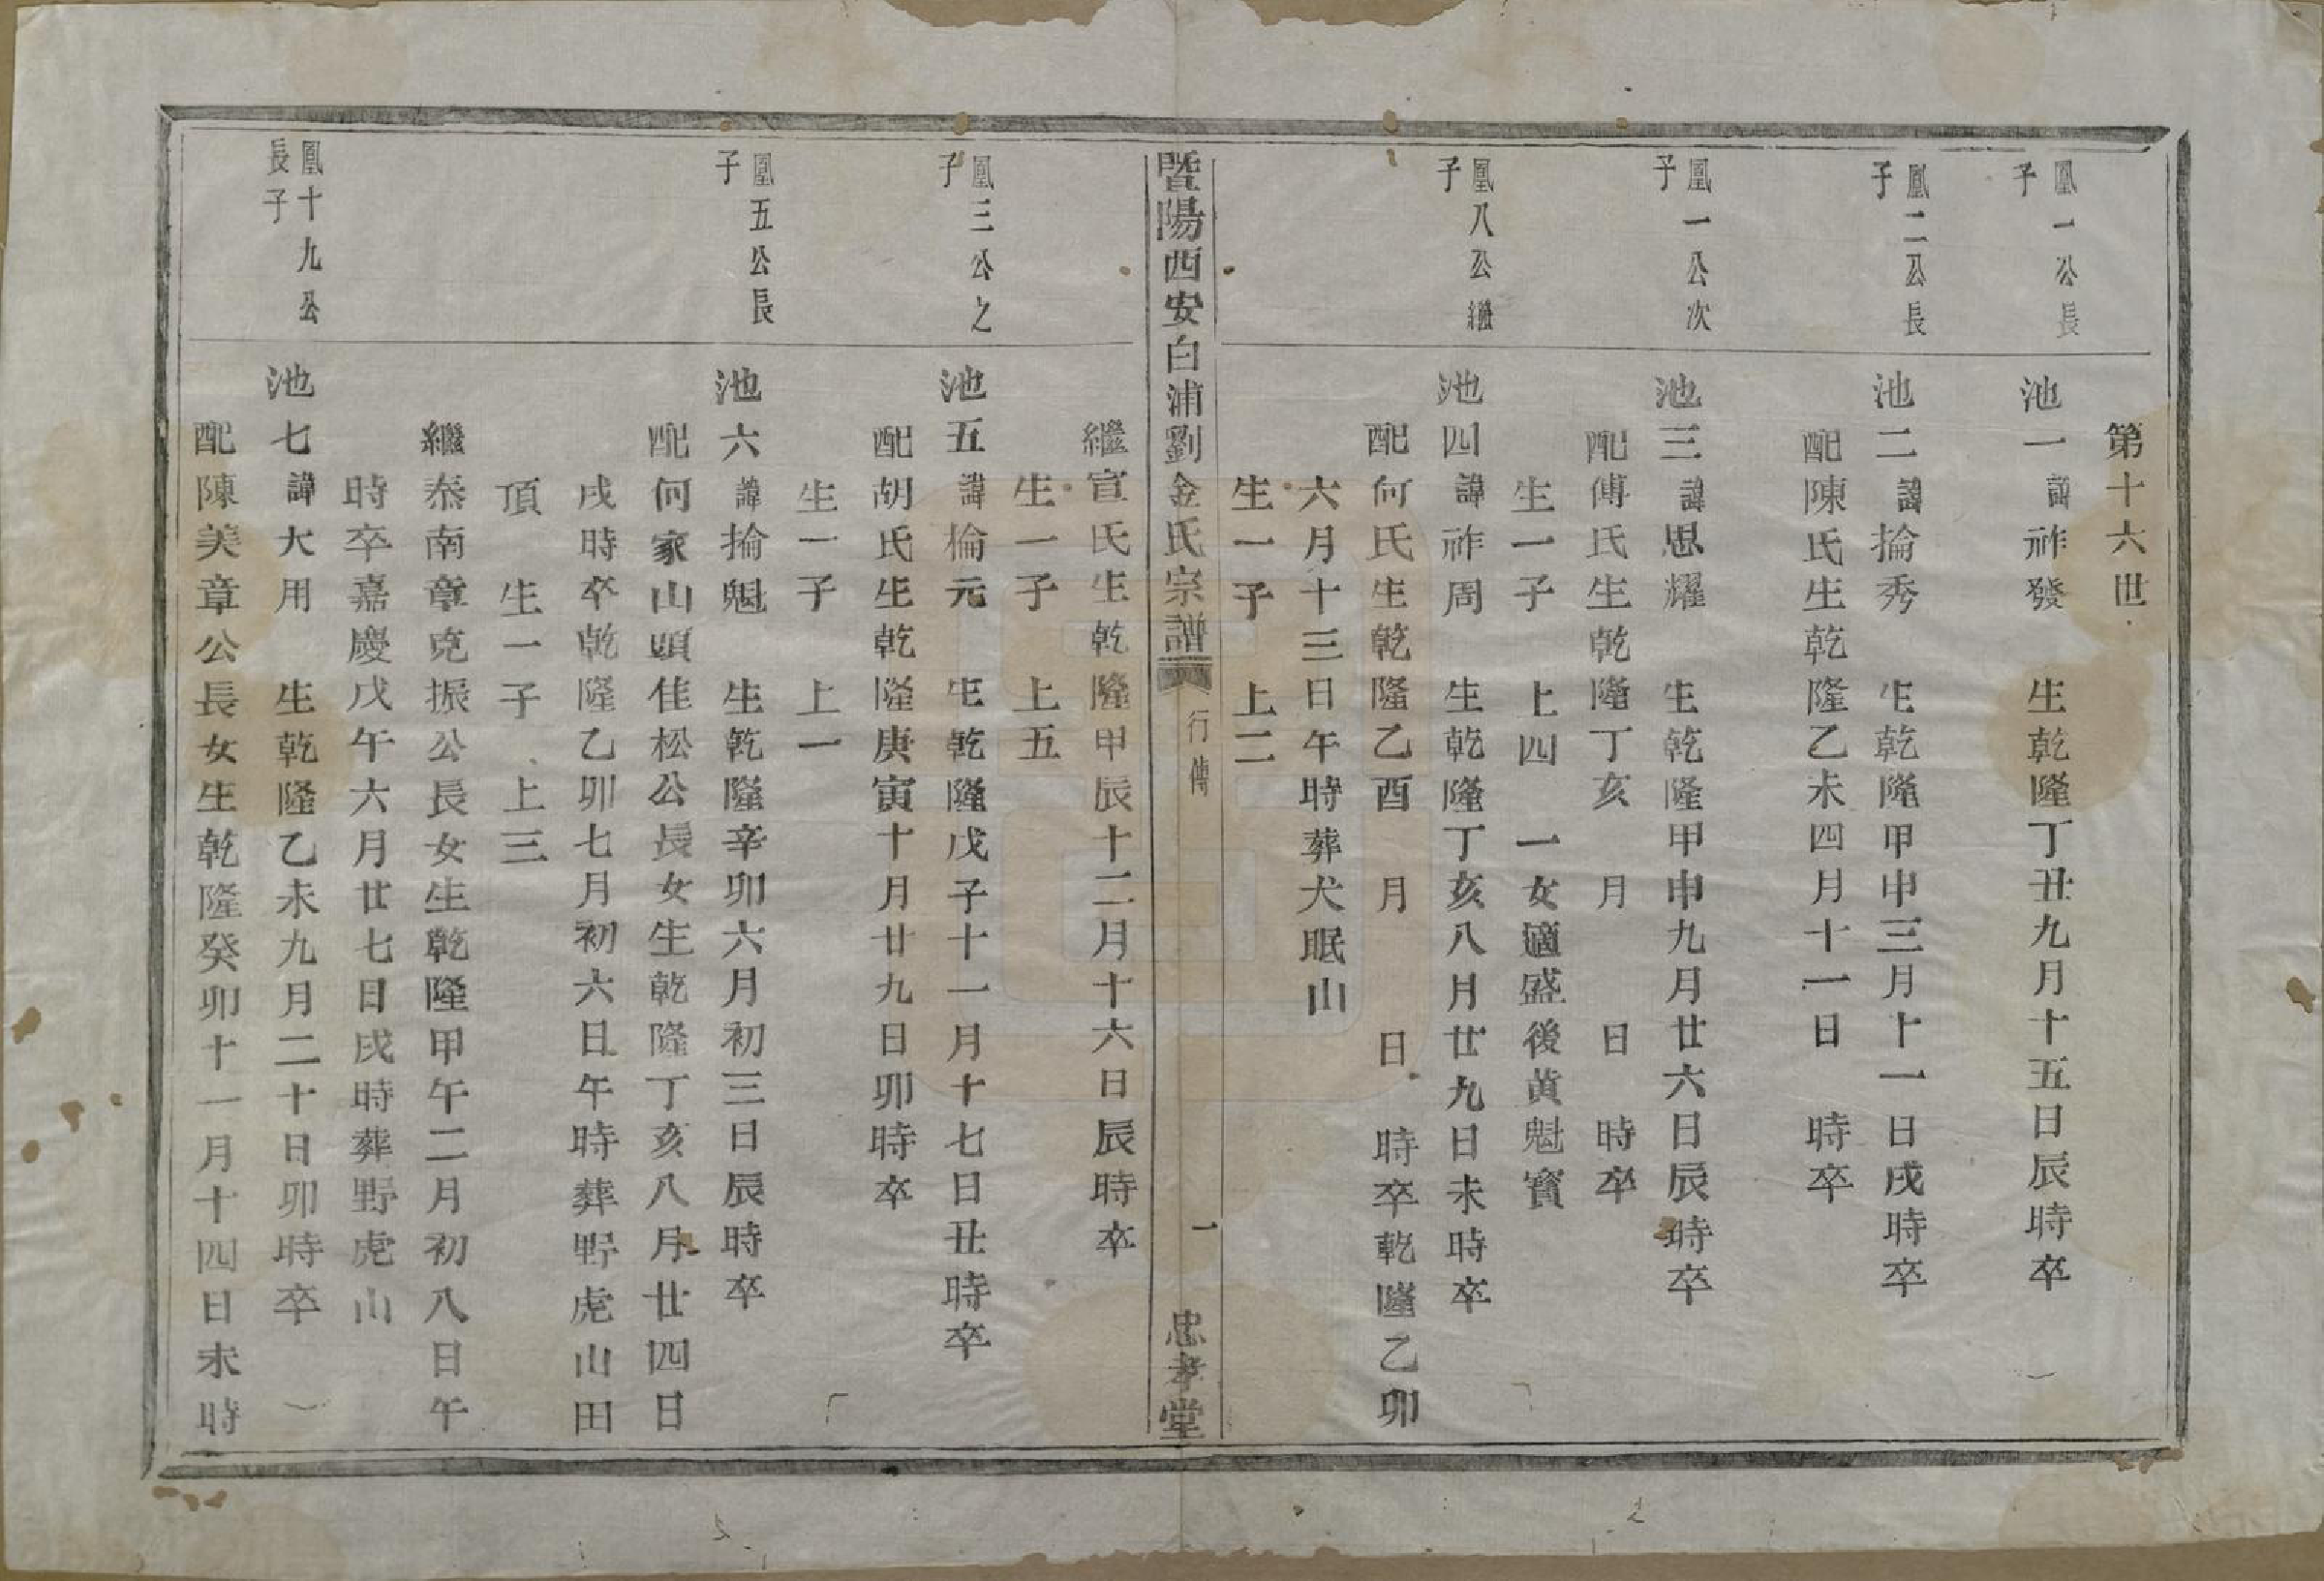 第十六世
鳳一公長子
池一諱祚發　生乾隆丁丑九月十五日辰時卒
鳳二公長子
池二諱掄秀　生乾隆甲申三月十一日戌時卒
配陳氏生乾隆乙未四月十一日　時卒
鳳一公次子
池三諱思耀　生乾隆甲申九月廿六日辰時卒
配傅氏生乾隆丁亥　月　日　時卒
生一子　上四　一女適盛後黃魁寳
鳳八公繼子
池四諱祚周　生乾隆丁亥八月廿九日未時卒
配何氏生乾隆乙酉　月　日　時卒乾隆乙卯
六月十三日午時葬犬眠山
生一子　上二
暨陽西安白浦劉金氏宗譜　行傳　一　忠孝堂
繼宣氏生乾隆甲辰十二月十六日辰時卒
生一子　上五
鳳三公之子
池五諱掄元　生乾隆戊子十一月十七日丑時卒
配胡氏生乾隆庚寅十月廿九日卯時卒
生一子　上一
鳳五公長子
池六諱掄魁　生乾隆辛卯六月初三日辰時卒
配何家山頭佳松公長女生乾隆丁亥八月廿四日
戌時卒乾隆乙卯七月初六日午時葬野虎山田
頂　生一子　上三
繼泰南章克振公長女生乾隆甲午二月初八日午
時卒嘉慶戊午六月廿七日戌時葬野虎山
鳳十九公長子
池七諱大用　生乾隆乙未九月二十日卯時卒
配陳美章公長女生乾隆癸卯十一月十四日未時